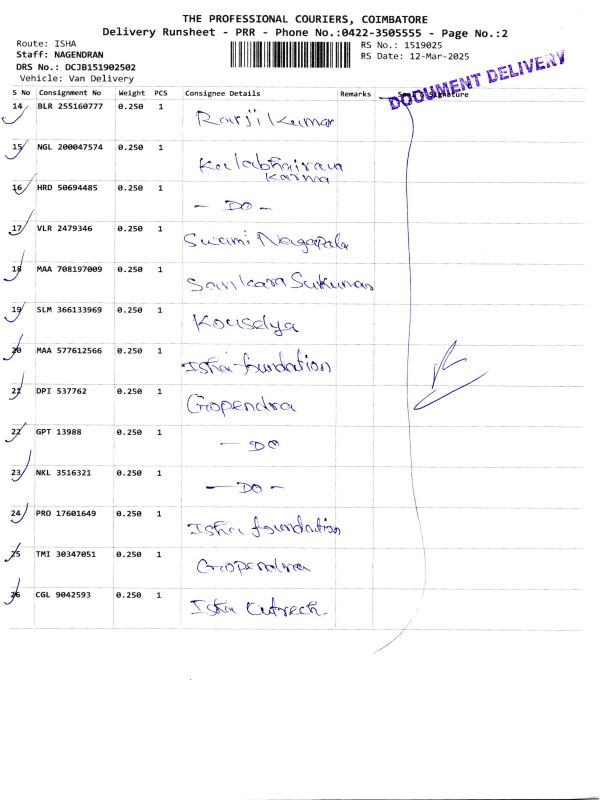 THE PROFESSIONAL COURIERS, COIMBATORE
Delivery Runsheet - PRR - Phone No.:0422-3505555 - Page No.:2
Route: ISHA
RS No.: 1519025
Staff: NAGENDRAN
RS Date: 12-Mar-2025
DRS No.: DCJB151902502
Vehicle: Van Delivery
DOCUMENT DELIVERY
S No Consignment No Weight PCS Consignee Details Remarks Seal & Signature
14 BLR 255160777 0.250 1 Ramji Kumar
15 NGL 200047574 0.250 1 Kalabhairava
Karma
16 HRD 50694485 0.250 1 - DO -
17 VLR 2479346 0.250 1 Swami Nagapala
18 MAA 708197009 0.250 1 Sankara Sukumar
19 SLM 366133969 0.250 1 Kousalya
20 MAA 577612566 0.250 1 Isha foundation
21 DPI 537762 0.250 1 Gopendra
22 GPT 13988 0.250 1 - DO
23 NKL 3516321 0.250 1 - DO -
24 PRO 17601649 0.250 1 Isha foundation
25 TMI 30347051 0.250 1 Gopendra
26 CGL 9042593 0.250 1 Isha Outreach